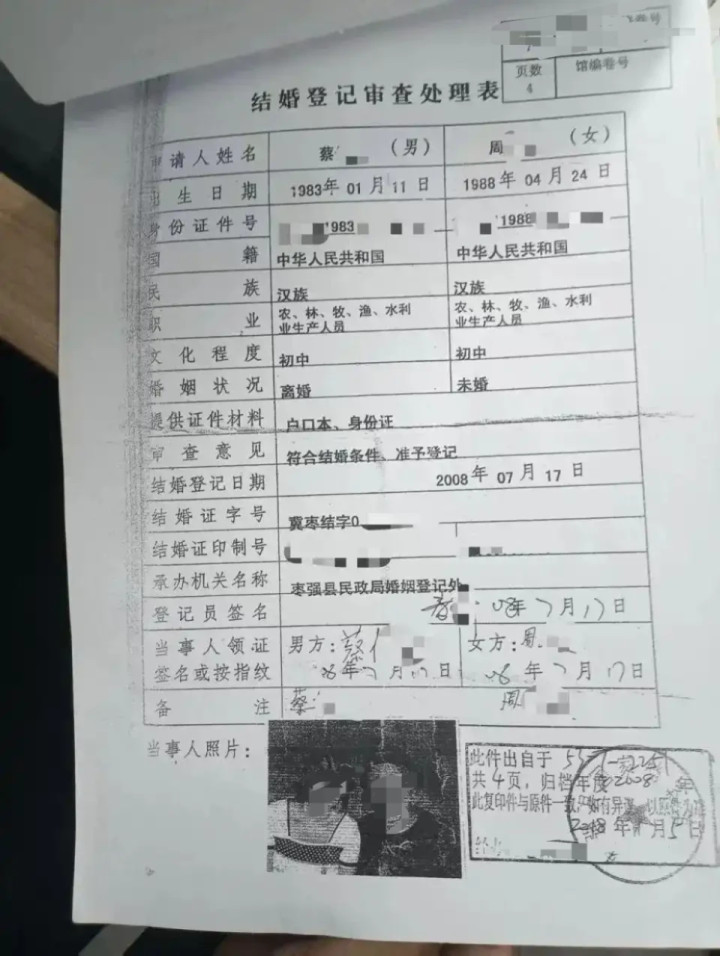 卷号
页数 馆编卷号
4
结婚登记审查处理表
申请人姓名 蔡 (男) 周 (女)
出生日期 1983年01月11日 1988年04月24日
身份证件号 1983 1988
国籍 中华人民共和国 中华人民共和国
民族 汉族 汉族
职业 农、林、牧、渔、水利 农、林、牧、渔、水利
业生产人员 业生产人员
文化程度 初中 初中
婚姻状况 离婚 未婚
提供证件材料 户口本、身份证
审查意见 符合结婚条件、准予登记
结婚登记日期 2008年07月17日
结婚证字号 冀枣结字0
结婚证印制号
承办机关名称 枣强县民政局婚姻登记处
登记员签名 08年7月17日
当事人领证 男方：蔡 女方：周
签名或按指纹 08年7月17日 08年7月17日
备注 蔡 周
当事人照片：
此件出自于
共4页，归档年度2008年
此复印件与原件一致，如有异
年 月 日